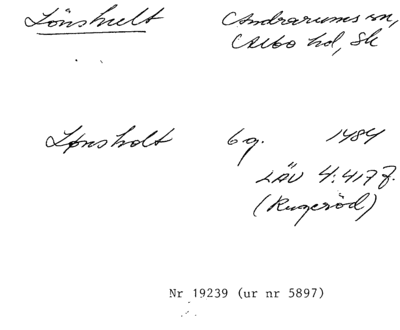 Lönshult Andrarums sn,
Albo hd, Sk
Lønsholt 6 g. 1484
LÄU 4:417 f.
(Rugeröd)
Nr 19239 (ur nr 5897)